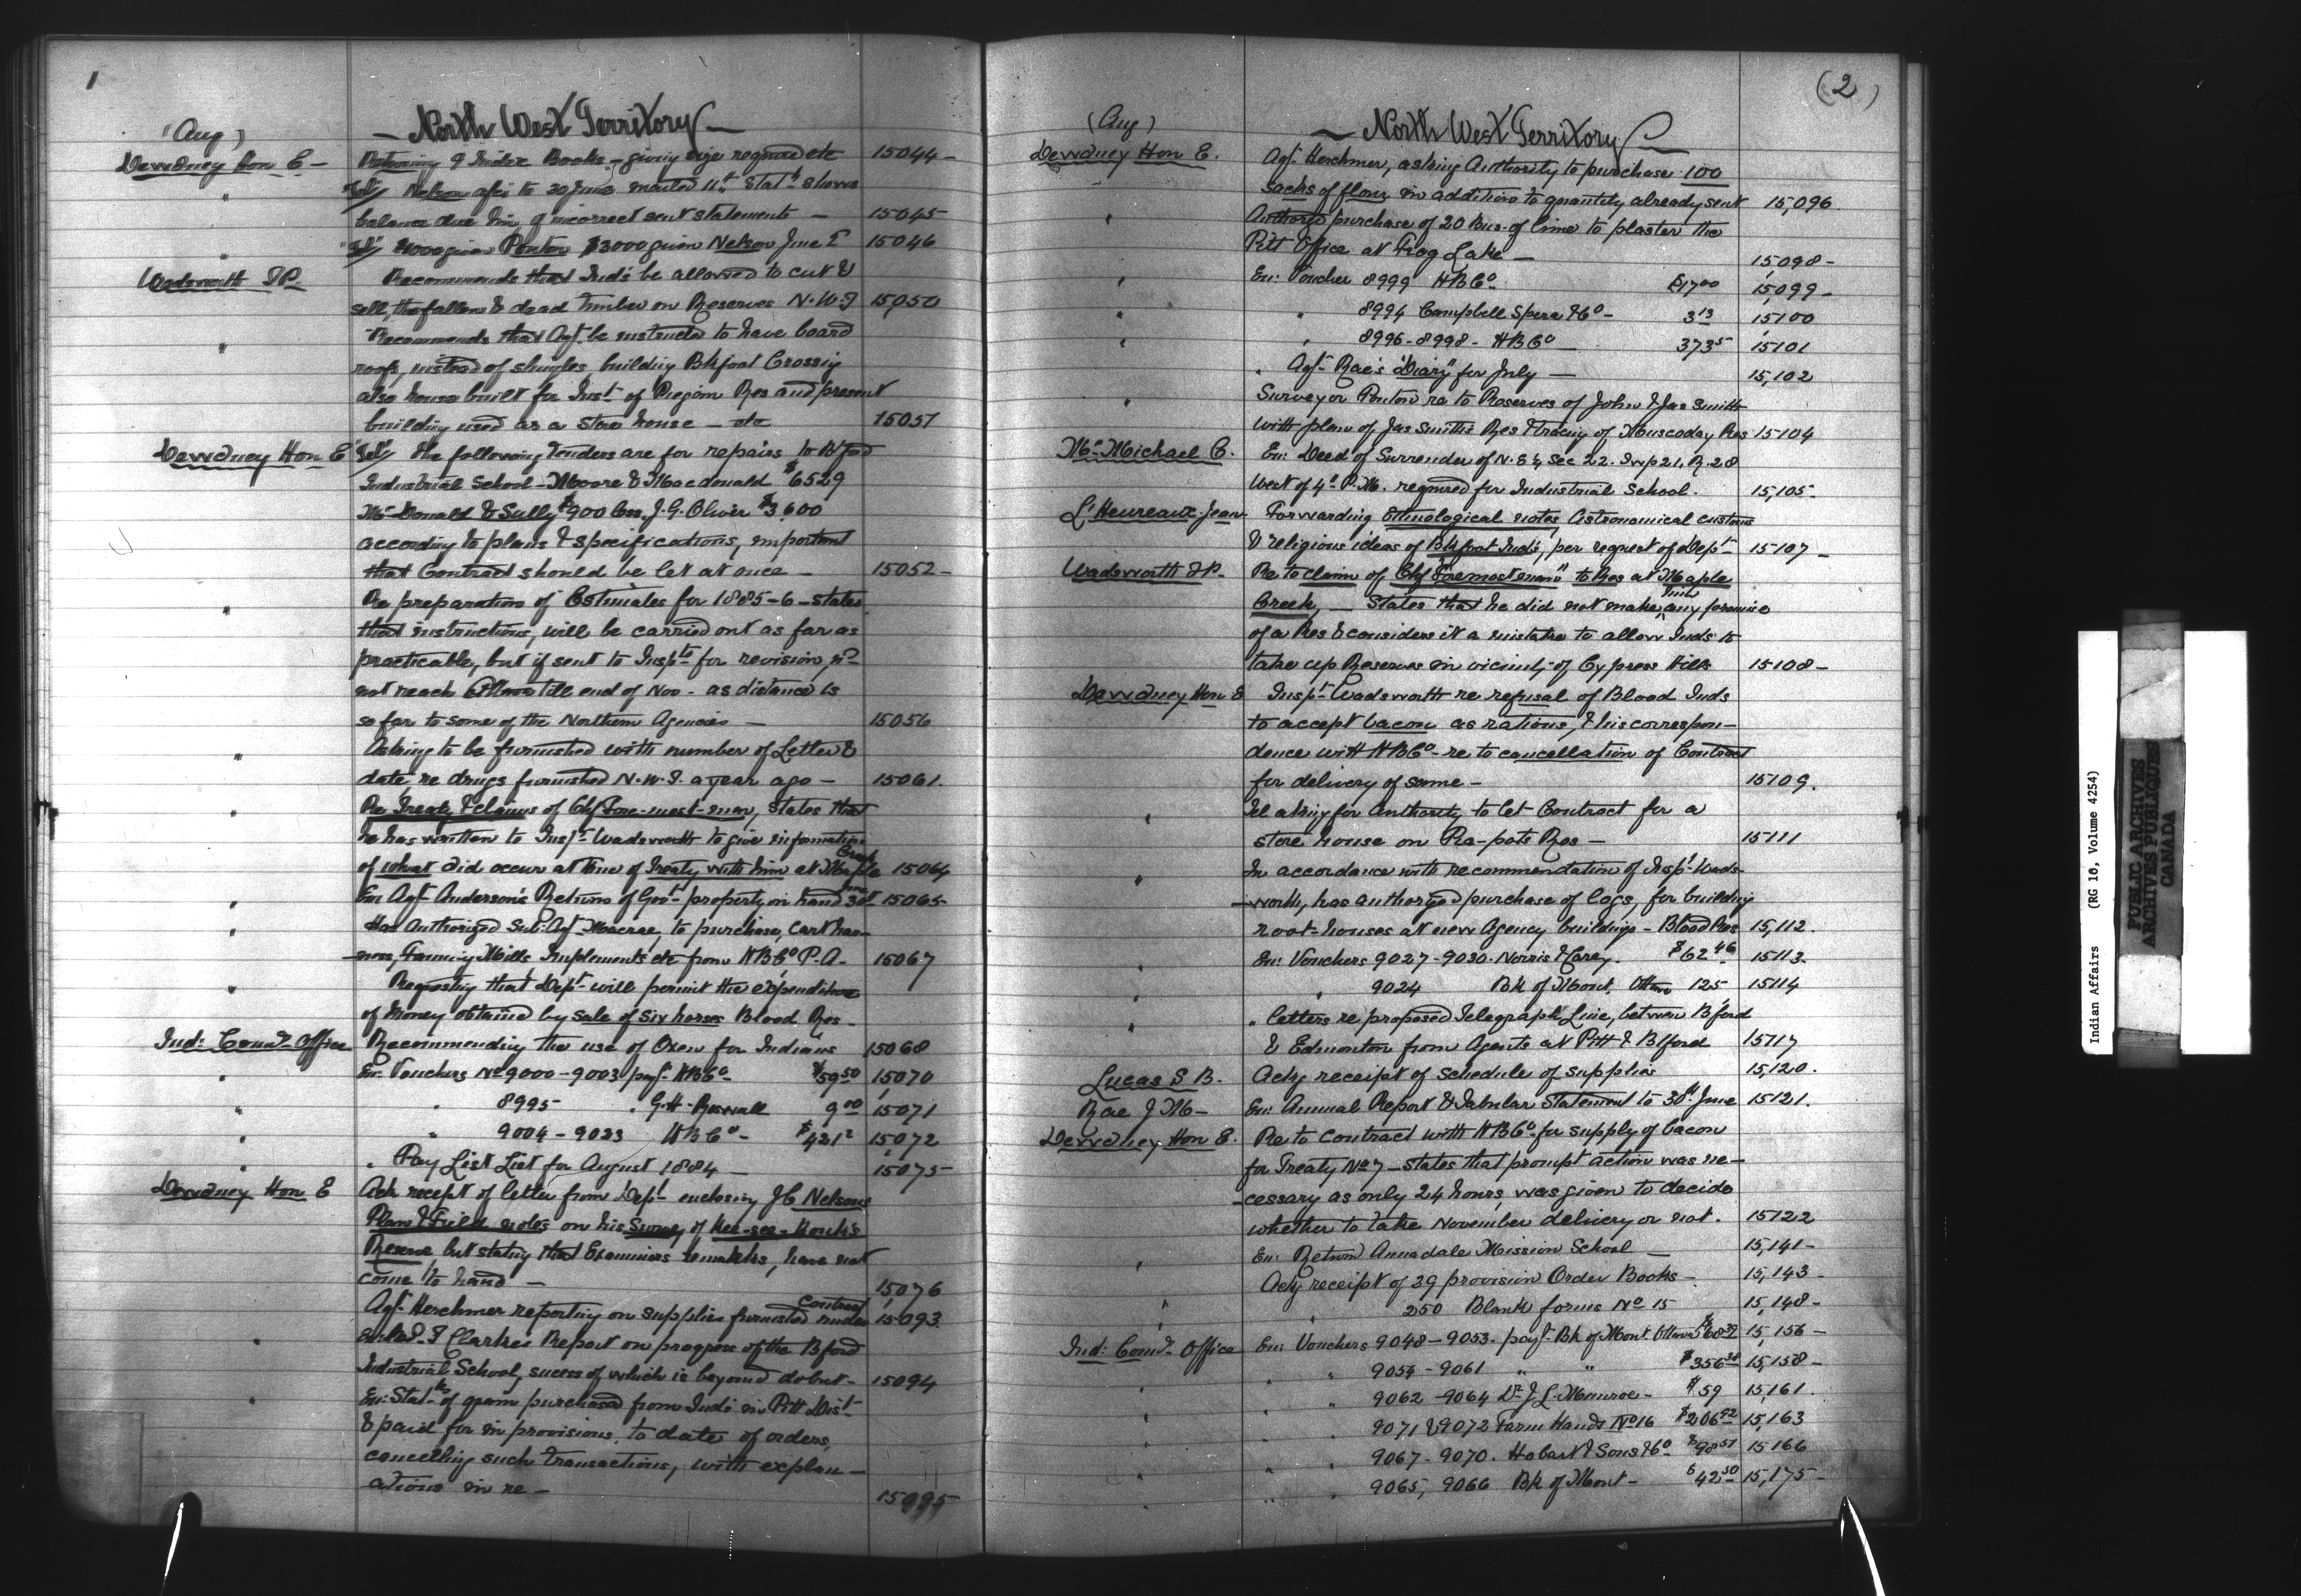 1
(Aug)
— North West Territory —
Dewdney Hon E — Returning 9 Index Books — giving size required etc 15044 —
" "Tel" Nelson afsi to 30 June mailed 11th Statt shows
balance due him if incorrect sent statements — 15045
" "Tel" given Ponton $3000 given Nelson June 15046
Wadsworth T.P. Recommends that Inds be allowed to cut &
sell, the fallen & dead timber on Reserves N.W.T 15,050
" Recommends that Agt. be instructed to have board
roofs, instead of shingles, building Bkfoot Crossing
also house built for Inst. of Piegan Res and present
building used as a Store house — etc 15051
Dewdney Hon E "Tel" the following Tenders are for repairs to Bford
Industrial School — Moore & Macdonald $6529
McDonald & Sully $900 less, J.G. Oliver $3,600
according to plans & specifications, important
that Contract should be let at once — 15052 —
" Re preparation of Estimates for 1885-6 — states
that instructions, will be carried out as far as
practicable, but if sent to Inspts for revision, wd
not reach Ottawa till end of Nov - as distance is
so far to some of the Northern Agencies — 15056
" Asking to be furnished with number of Letter &
date, re drugs furnished N.W.T. a year ago — 15061.
" Re Treaty & claims of Chf Fore-most-man, states that
he has written to Inspt Wadsworth to give information
of what did occur at time of Treaty with him at Maple Creek 15064
" En: Agt Anderson's Return of Govt property on hand 30th June 15065 —
" Has Authorized Sub-Agt Macrae, to purchase, Cart har-
—ness, Fanning Mills Implements etc from HBCo P.A. — 15067
" Requesting that Dept will permit the expenditure
of money obtained by sale of six horses Blood Res —
Ind: Comr. Office Recommending the use of Oxen for Indians 15068
" En: Vouchers No 9000 — 9003 payt. HBCo — $59.50 15,070
" " 8995 " G.H. Roswall 9.00 15,071
" " 9004 — 9023 HBCo — $421 2 15,072
" " Pay List List for August 1884 — 15,075 —
Dewdney Hon E Ack receipt of letter from Dept enclosing J C Nelsons
Plan & Field notes on his Survey of Kee-see-kouch's
Reserve but stating that Examiners remarks, have not
come to hand — 15,076
Agt. Herchmer reporting on supplies furnished under Contract 15093
" T Clarkes Report on progress of the Bford
Industrial School, sucess of which is beyond dobut — 15094
" En: Statts of grain purchased from Inds in Pitt Dist —
& paid for in provisions, to date of orders,
cancelling such transactions, with explan —
ations in re — 15095
(2)
(Aug)
— North West Territory —
Dewdney Hon E. Agt Herchmer, asking Authority to purchase 100
sacks of flour in addition to quantity already sent 15,096.
" Authorzd purchase of 20 Bus. of lime to plaster the
Pitt Office at Frog Lake — 15,098 —
" En: Voucher 8999 HBCo — $17.00 15,099 —
" " 8994 Campbell Spera & Co — 3.13 15,100
" " 8996-8998 — HBCo — 373 5 15,101
" Agt Rae's "Diary" for July — 15,102
" Surveyor Ponton re to Reserves of John & Jas Smith
with plan of Jas Smith's Res & tracing of Muscoday Res 15104
McMichael C. En: Deed of Surrender of N.E ¼ Sec 22. Twp 21, R. 28
West of 4th P.M. required for Industrial School. 15,105 —
L'Heureaux Jean Forwarding Ethnological notes, Astronomical customs
& religious ideas of Bkfoot Inds, per request of Dept — 15107 —
Wadsworth T.P. Re to claim of Chf "Foremost man" to Res at Maple
Creek, — States that he did not make him any promise
of a Res & considers it a mistake to allow Inds to
take up Reserves in vicinity of Cypress Hills 15108 —
Dewdney Hon E Inspt Wadsworth re refusal of Blood Inds
to accept bacon as rations, & his correspon —
dence with HBCo — re to cancellation of Contract
for delivery of same — 15109.
" Tel asking for Authority to let Contract for a
store house on Ra-pots Res — 15111
" In accordance with recommendation of Inspt Wads-
—worth, has authorized purchase of logs, for building
root-houses at new Agency buildings — Blood Res 15,112.
" En: Vouchers 9027-9030. Norris & Carey. $62.46 15113.
" " 9024 Bk of Mont. Ottawa 125 15114
" " letters re proposed Telegraph Line, between Bford
& Edmonton from Agents at Pitt & Bford 15117
Lucas S B. Ackg receipt of schedule of supplies 15,120.
Rae J M — En: Annual Report & Tabular Statement to 30th June 15121.
Dewdney Hon E. Re to Contract with HBCo for supply of bacon
for Treaty No 7 — states that prompt action was ne —
—cessary as only 24 hours, was given to decide
whether to take November delivery or not. 15122
" En: Return Annadale Mission School — 15,141 —
Ackg receipt of 39 provision Order Books — 15,143 —
" " 250 Blank forms No 15 15,148 —
Ind: Comr. Office En: Vouchers 9048 — 9053. payt. Bk of Mont Ottawa 15,156 —
" " 9054 — 9061 " " $356.38 15,158 —
" " 9062 — 9064 Dr. J.L. Munroe — $59 15,161.
" " 9071 & 9072 Farm Hands No 16 $206.92 15,163
" " 9067 - 9070. Hobart & Sons & Co $98.57 15,166
" " 9065, 9066 Bk of Mont — $42.50 15,175 —
Indian Affairs (RG 10, Volume 4254)
PUBLIC ARCHIVES
ARCHIVES PUBLIQUES
CANADA